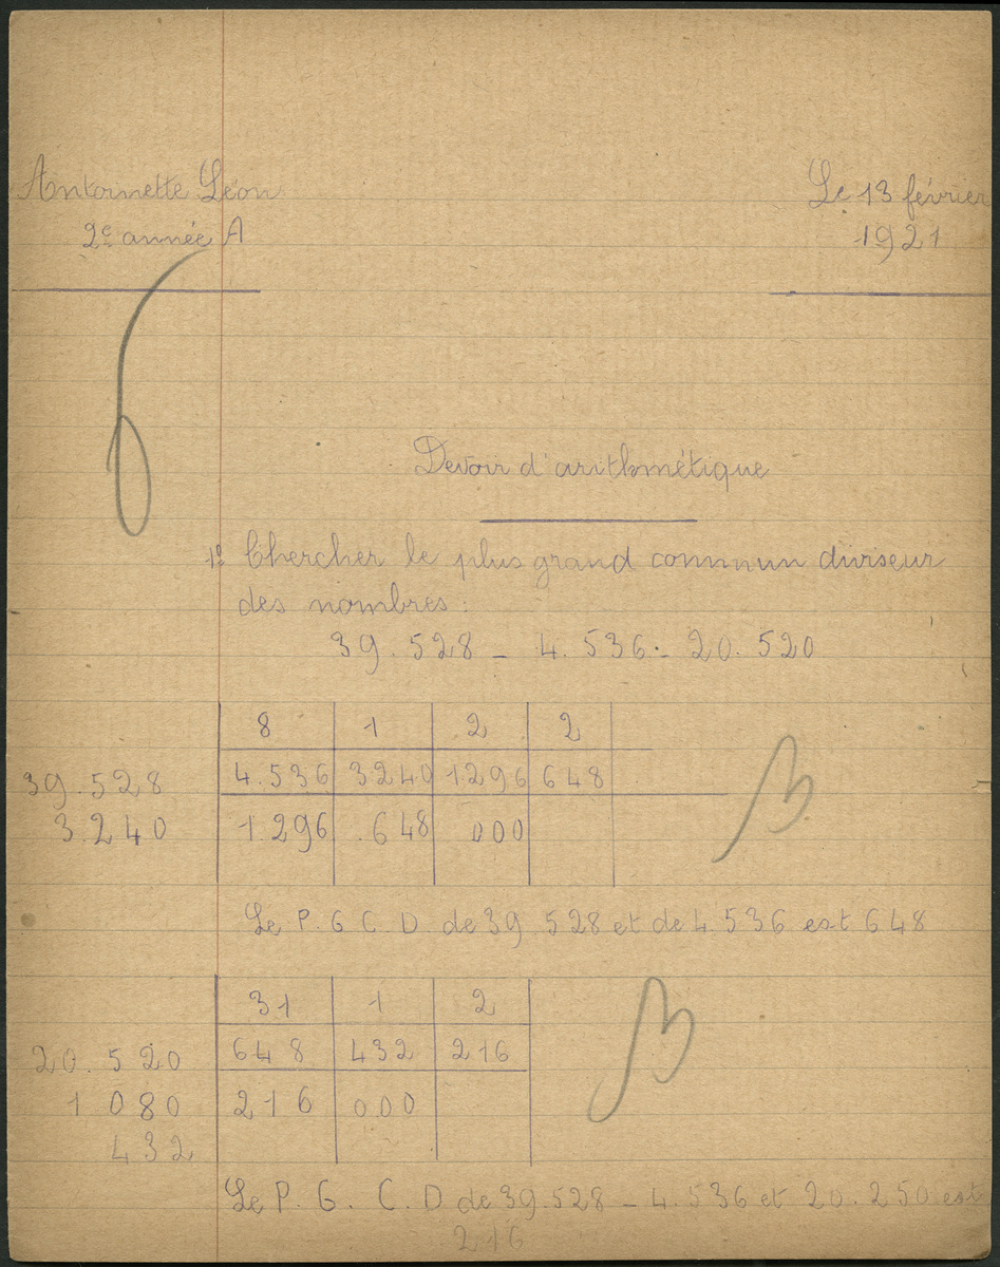 Antoinette Léon
Le 13 février
2e année A
1921
Devoir d'arithmétique
1º Chercher le plus grand commun diviseur
des nombres :
39.528 - 4.536 - 20.520
8 1 2 2
39.528 4.536 3240 1296 648
3.240 1.296 648 000
Le P. G. C. D. de 39 528 et de 4.536 est 648
31 1 2
20.520 648 432 216
1 080 216 000
432
Le P. G. C. D de 39.528 - 4.536 et 20.250 est
216